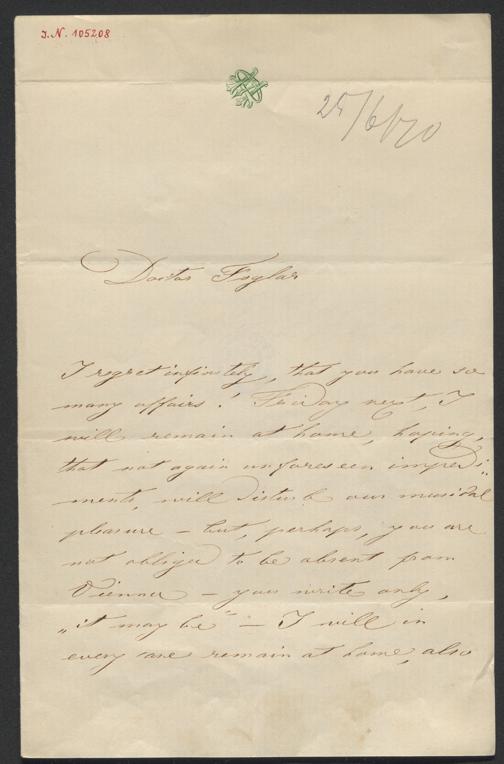 J. N. 105208
25/6/70
Doctor Foglar
I regret infinitely, that you have so
many affairs! Friday next, I
will remain at home, hoping,
that not again unforeseen impedi„
ments, will disturb our musical
pleasure – but, perhaps, you are
not obliged to be absent from
Vienna – you write only,
„it may be" – I will in
every case remain at home, also